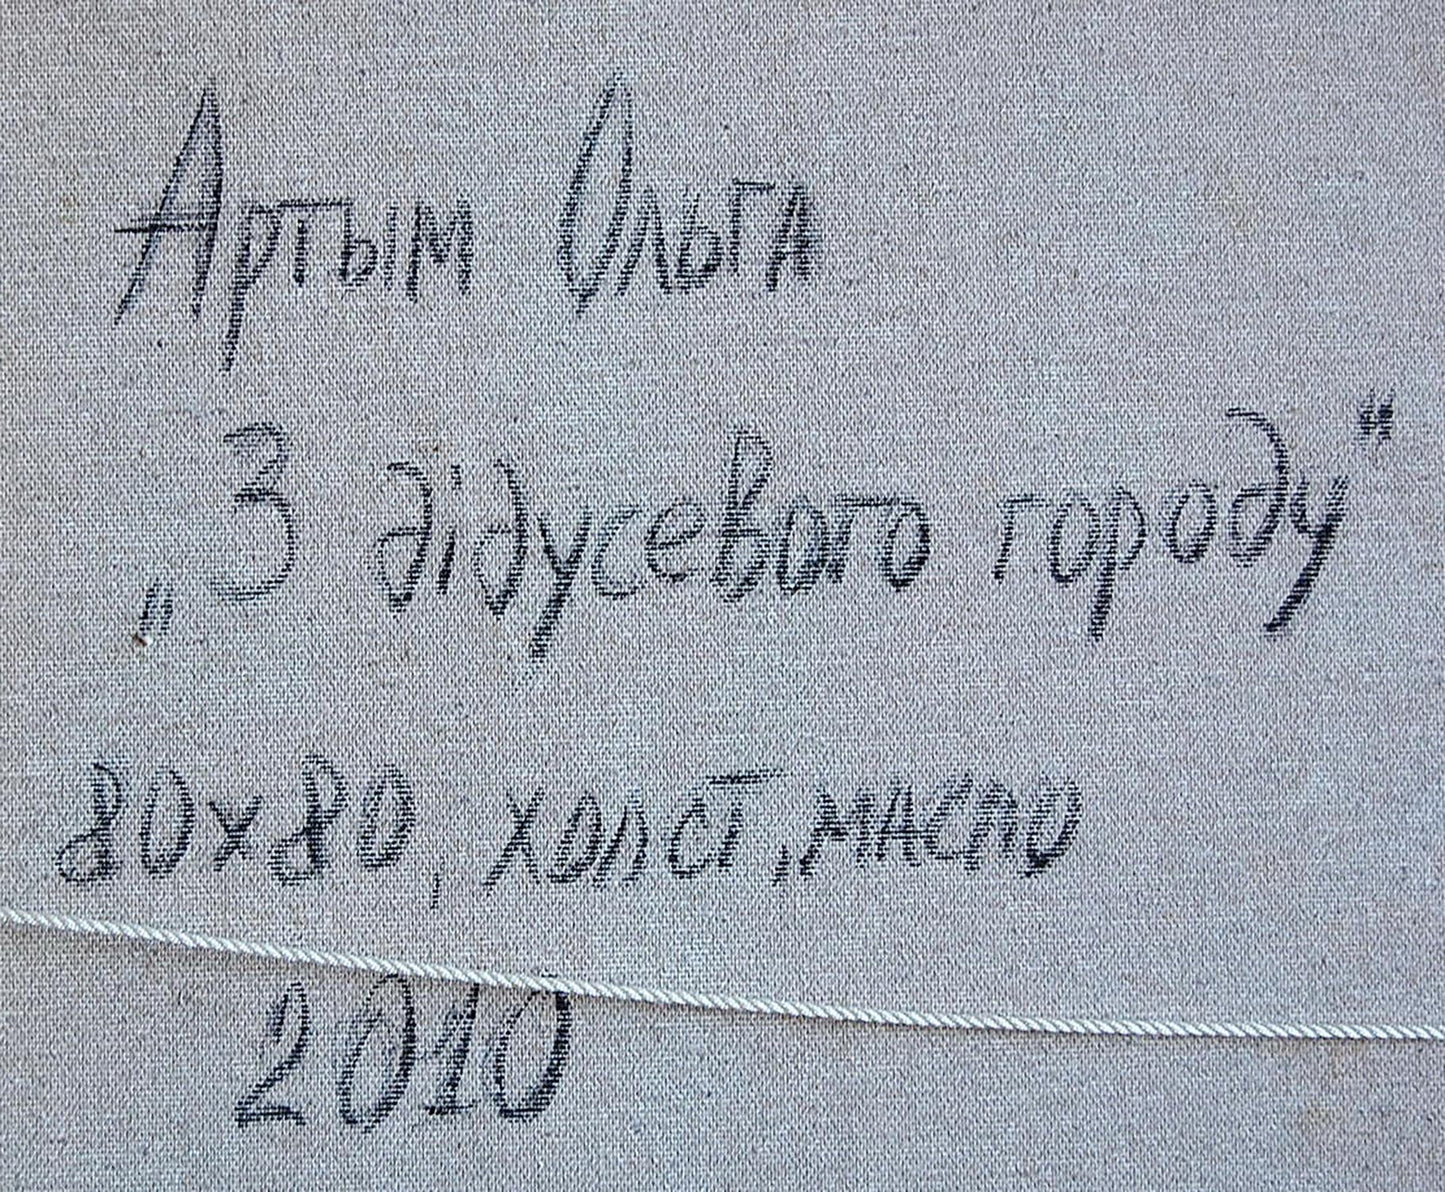 Артым Ольга
„З дідусевого городу"
80х80, холст, масло
2010